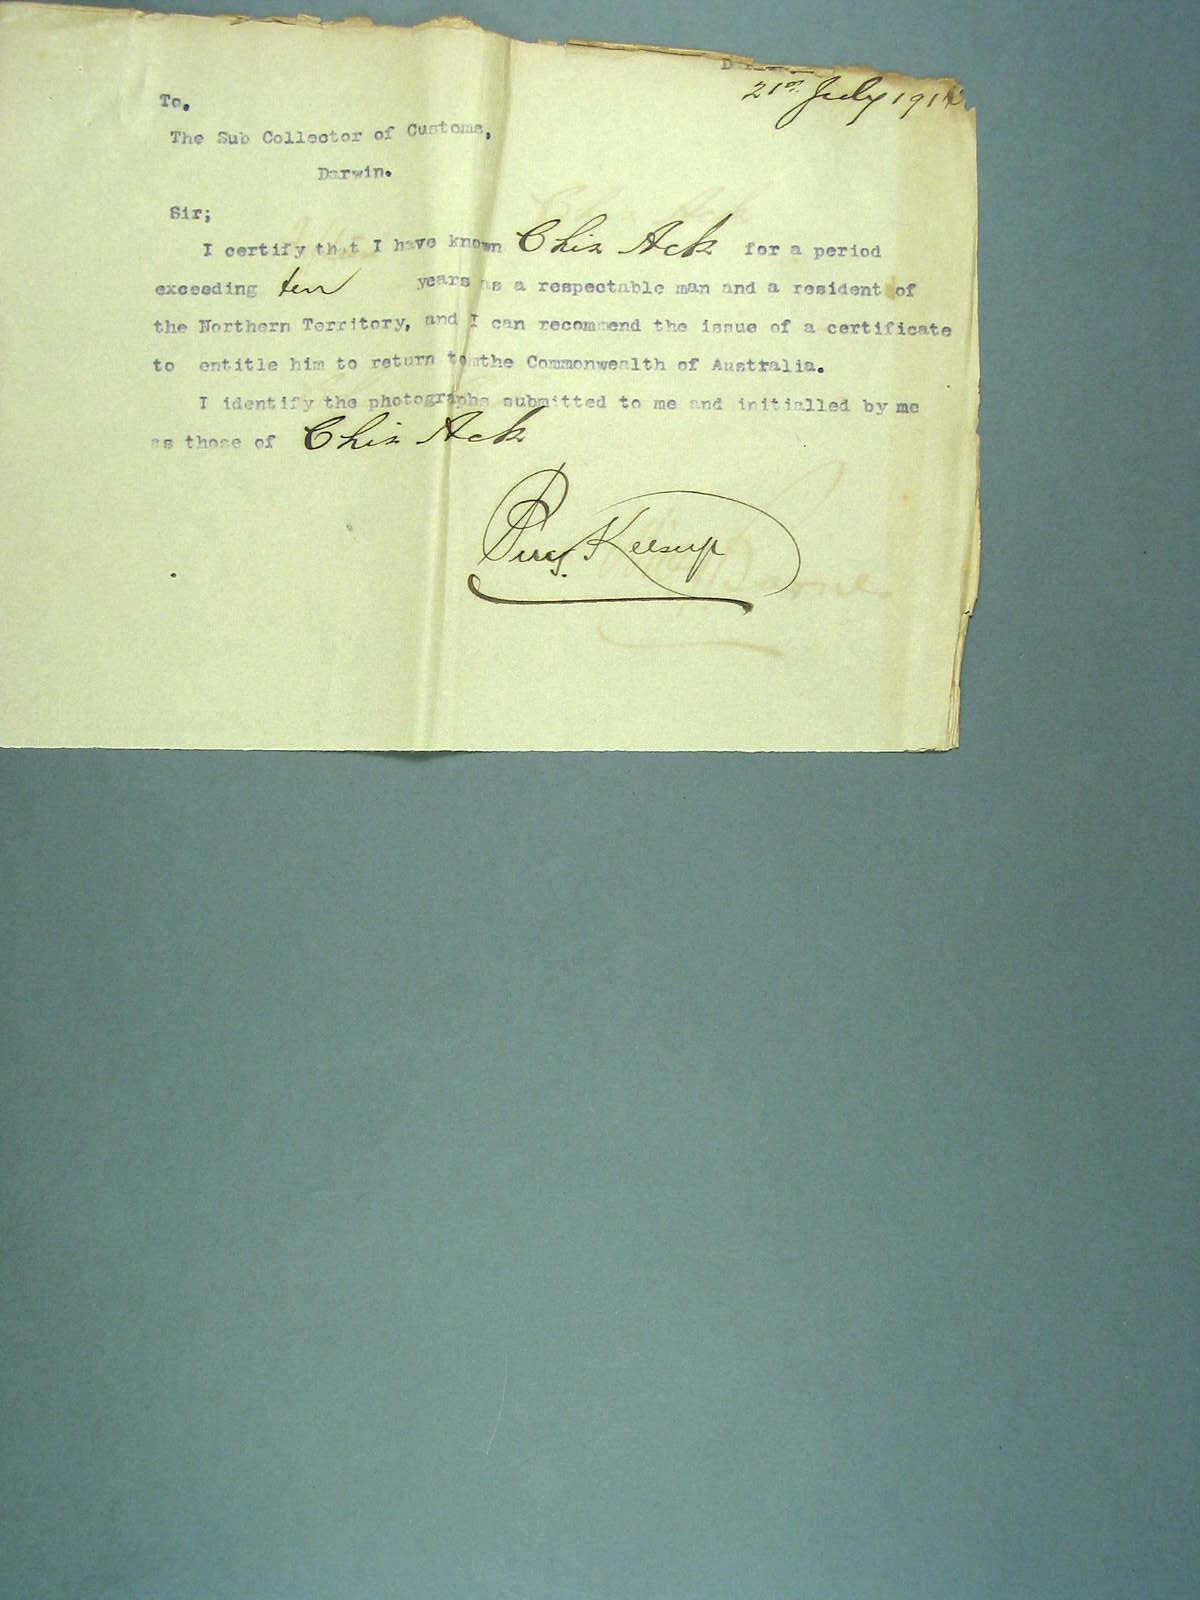 21st July 191
To,
The Sub Collector of Customs,
Darwin.
Sir;
I certify that I have known Chin Ack for a period
exceeding ten years as a respectable man and a resident of
the Northern Territory, and I can recommend the issue of a certificate
to entitle him to return to the Commonwealth of Australia.
I identify the photographs submitted to me and initialled by me
as those of Chin Ack